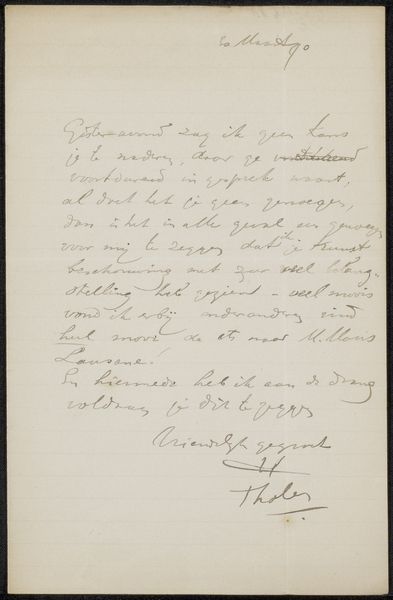 20 Maart 90
Gister-avond zag ik geen kans
je te naderen, daar ge
voortdurend in gesprek waart,
al doet het je geen genoegen,
dan is het in alle geval een genoegen
voor mij te zeggen dat ik je kunst
beschouwing met zeer veel belang-
stelling heb gezien - veel moois
vond ik erbij onder andere vind
heel mooi de ets naar M. Maris
Lausanne!
En hiermede heb ik aan de drang
voldaan je dit te zeggen
Vriendelijk gegroet
Tholen